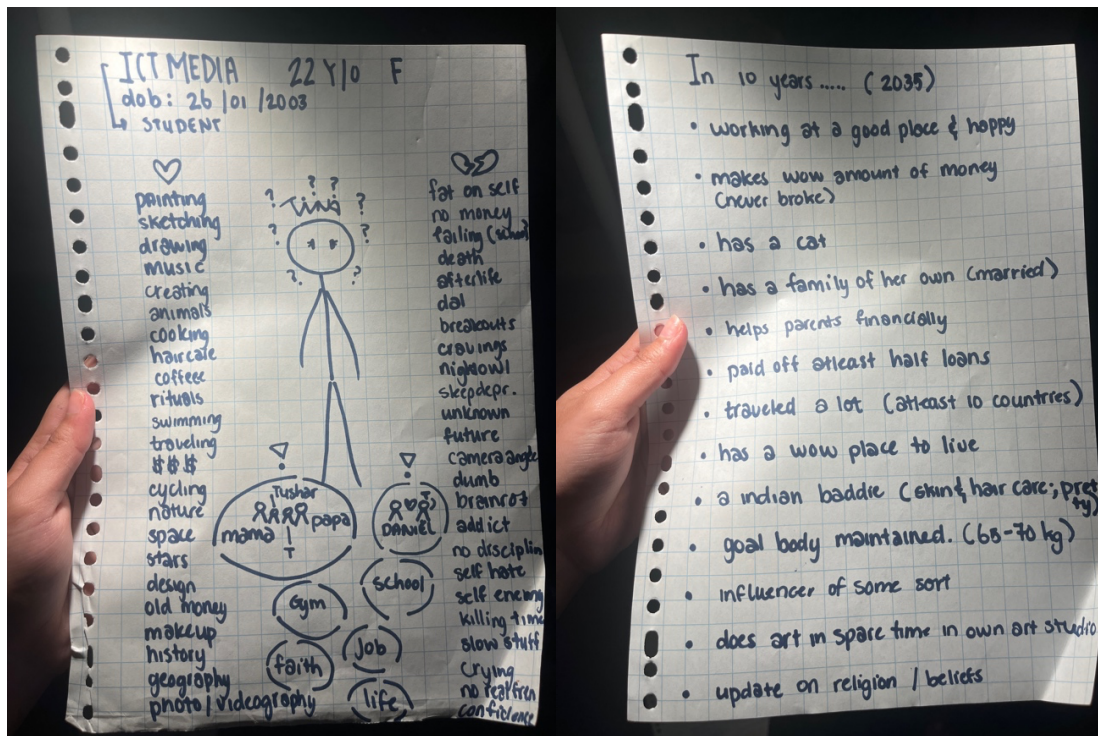 ICT MEDIA 22 Y/O F
dob: 26/01/2003
STUDENT
painting
sketching
drawing
music
creating
animals
cooking
haircare
coffee
rituals
swimming
traveling
$$$
cycling
nature
space
stars
design
old money
makeup
history
geography
photo/videography
? ?
? ?
Tina
? ?
? ?
Tushar
mama papa
T
DANIEL
Gym
school
faith
job
life
fat on self
no money
failing (school)
death
afterlife
dal
breakouts
cravings
nightowl
sleepdepr.
unknown
future
camera angle
dumb
brainrot
addict
no disciplin
self hate
self enemy
killing time
slow stuff
crying
no real fren
confidence
In 10 years..... (2035)
• working at a good place & happy
• makes wow amount of money
(never broke)
• has a cat
• has a family of her own (married)
• helps parents financially
• paid off atleast half loans
• traveled a lot (atleast 10 countries)
• has a wow place to live
• a indian baddie (skin & hair care, pret
ty)
• goal body maintained. (65-70 kg)
• influencer of some sort
• does art in spare time in own art studio
• update on religion / beliefs